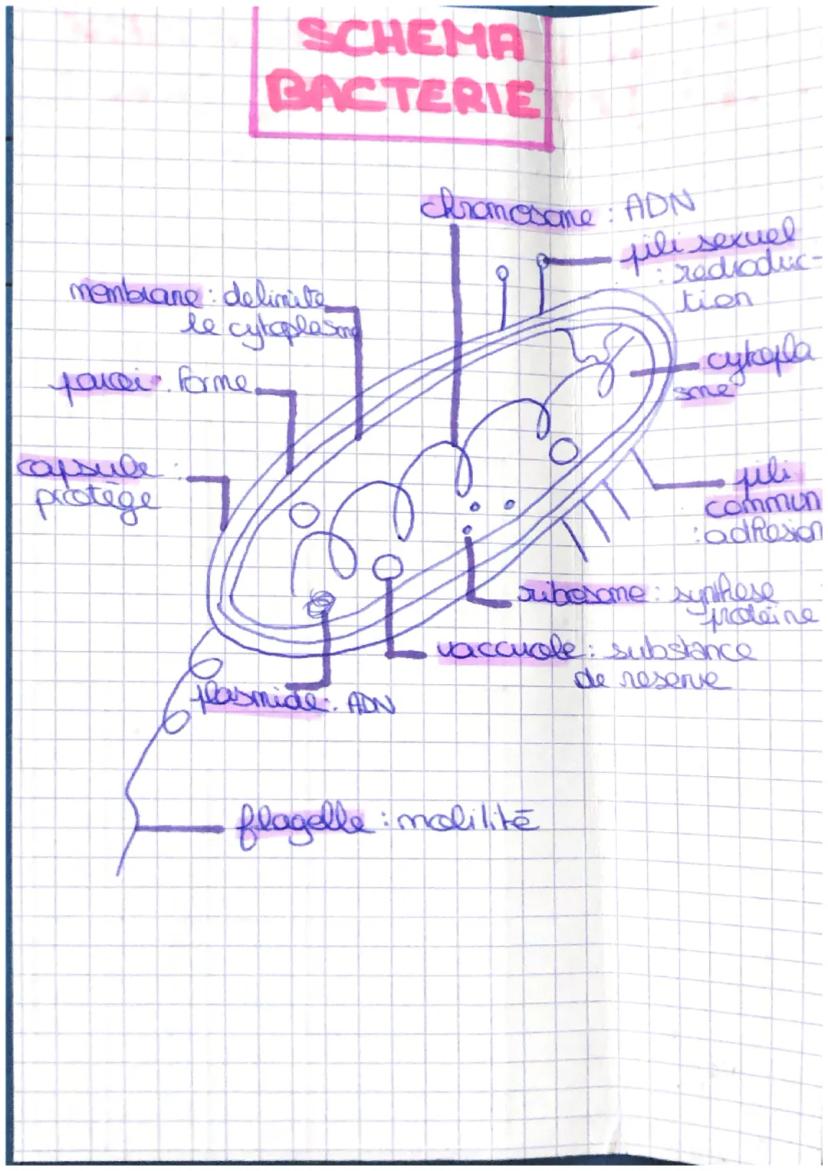 SCHEMA
BACTERIE
chromosome : ADN
pili sexuel
: reproduc-
tion
membrane : delimite
le cytoplasme
paroi : forme
cytopla
sme
capsule :
protège
pili
commun
: adhesion
ribosome : synthese
proteine
vaccuole : substance
de reserve
plasmide : ADN
flagelle : mobilité